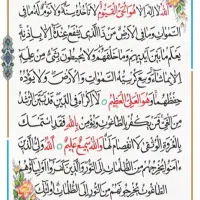 اللَّهُ لَا إِلَهَ إِلَّا هُوَ الْحَيُّ الْقَيُّومُ لَا تَأْخُذُهُ سِنَةٌ وَلَا نَوْمٌ لَهُ مَا فِي
السَّمَوَاتِ وَمَا فِي الْأَرْضِ مَنْ ذَا الَّذِي يَشْفَعُ عِنْدَهُ إِلَّا بِإِذْنِهِ
يَعْلَمُ مَا بَيْنَ أَيْدِيهِمْ وَمَا خَلْفَهُمْ وَلَا يُحِيطُونَ بِشَيْءٍ مِنْ عِلْمِهِ
إِلَّا بِمَا شَاءَ وَسِعَ كُرْسِيُّهُ السَّمَوَاتِ وَالْأَرْضَ وَلَا يَؤُدُهُ
حِفْظُهُمَا وَهُوَ الْعَلِيُّ الْعَظِيمُ لَا إِكْرَاهَ فِي الدِّينِ قَدْ تَبَيَّنَ الرُّشْدُ
مِنَ الْغَيِّ فَمَنْ يَكْفُرْ بِالطَّاغُوتِ وَيُؤْمِنْ بِاللَّهِ فَقَدِ اسْتَمْسَكَ
بِالْعُرْوَةِ الْوُثْقَى لَا انْفِصَامَ لَهَا وَاللَّهُ سَمِيعٌ عَلِيمٌ اللَّهُ وَلِيُّ الَّذِينَ
آمَنُوا يُخْرِجُهُمْ مِنَ الظُّلُمَاتِ إِلَى النُّورِ وَالَّذِينَ كَفَرُوا أَوْلِيَاؤُهُمُ
الطَّاغُوتُ يُخْرِجُونَهُمْ مِنَ النُّورِ إِلَى الظُّلُمَاتِ أُولَئِكَ